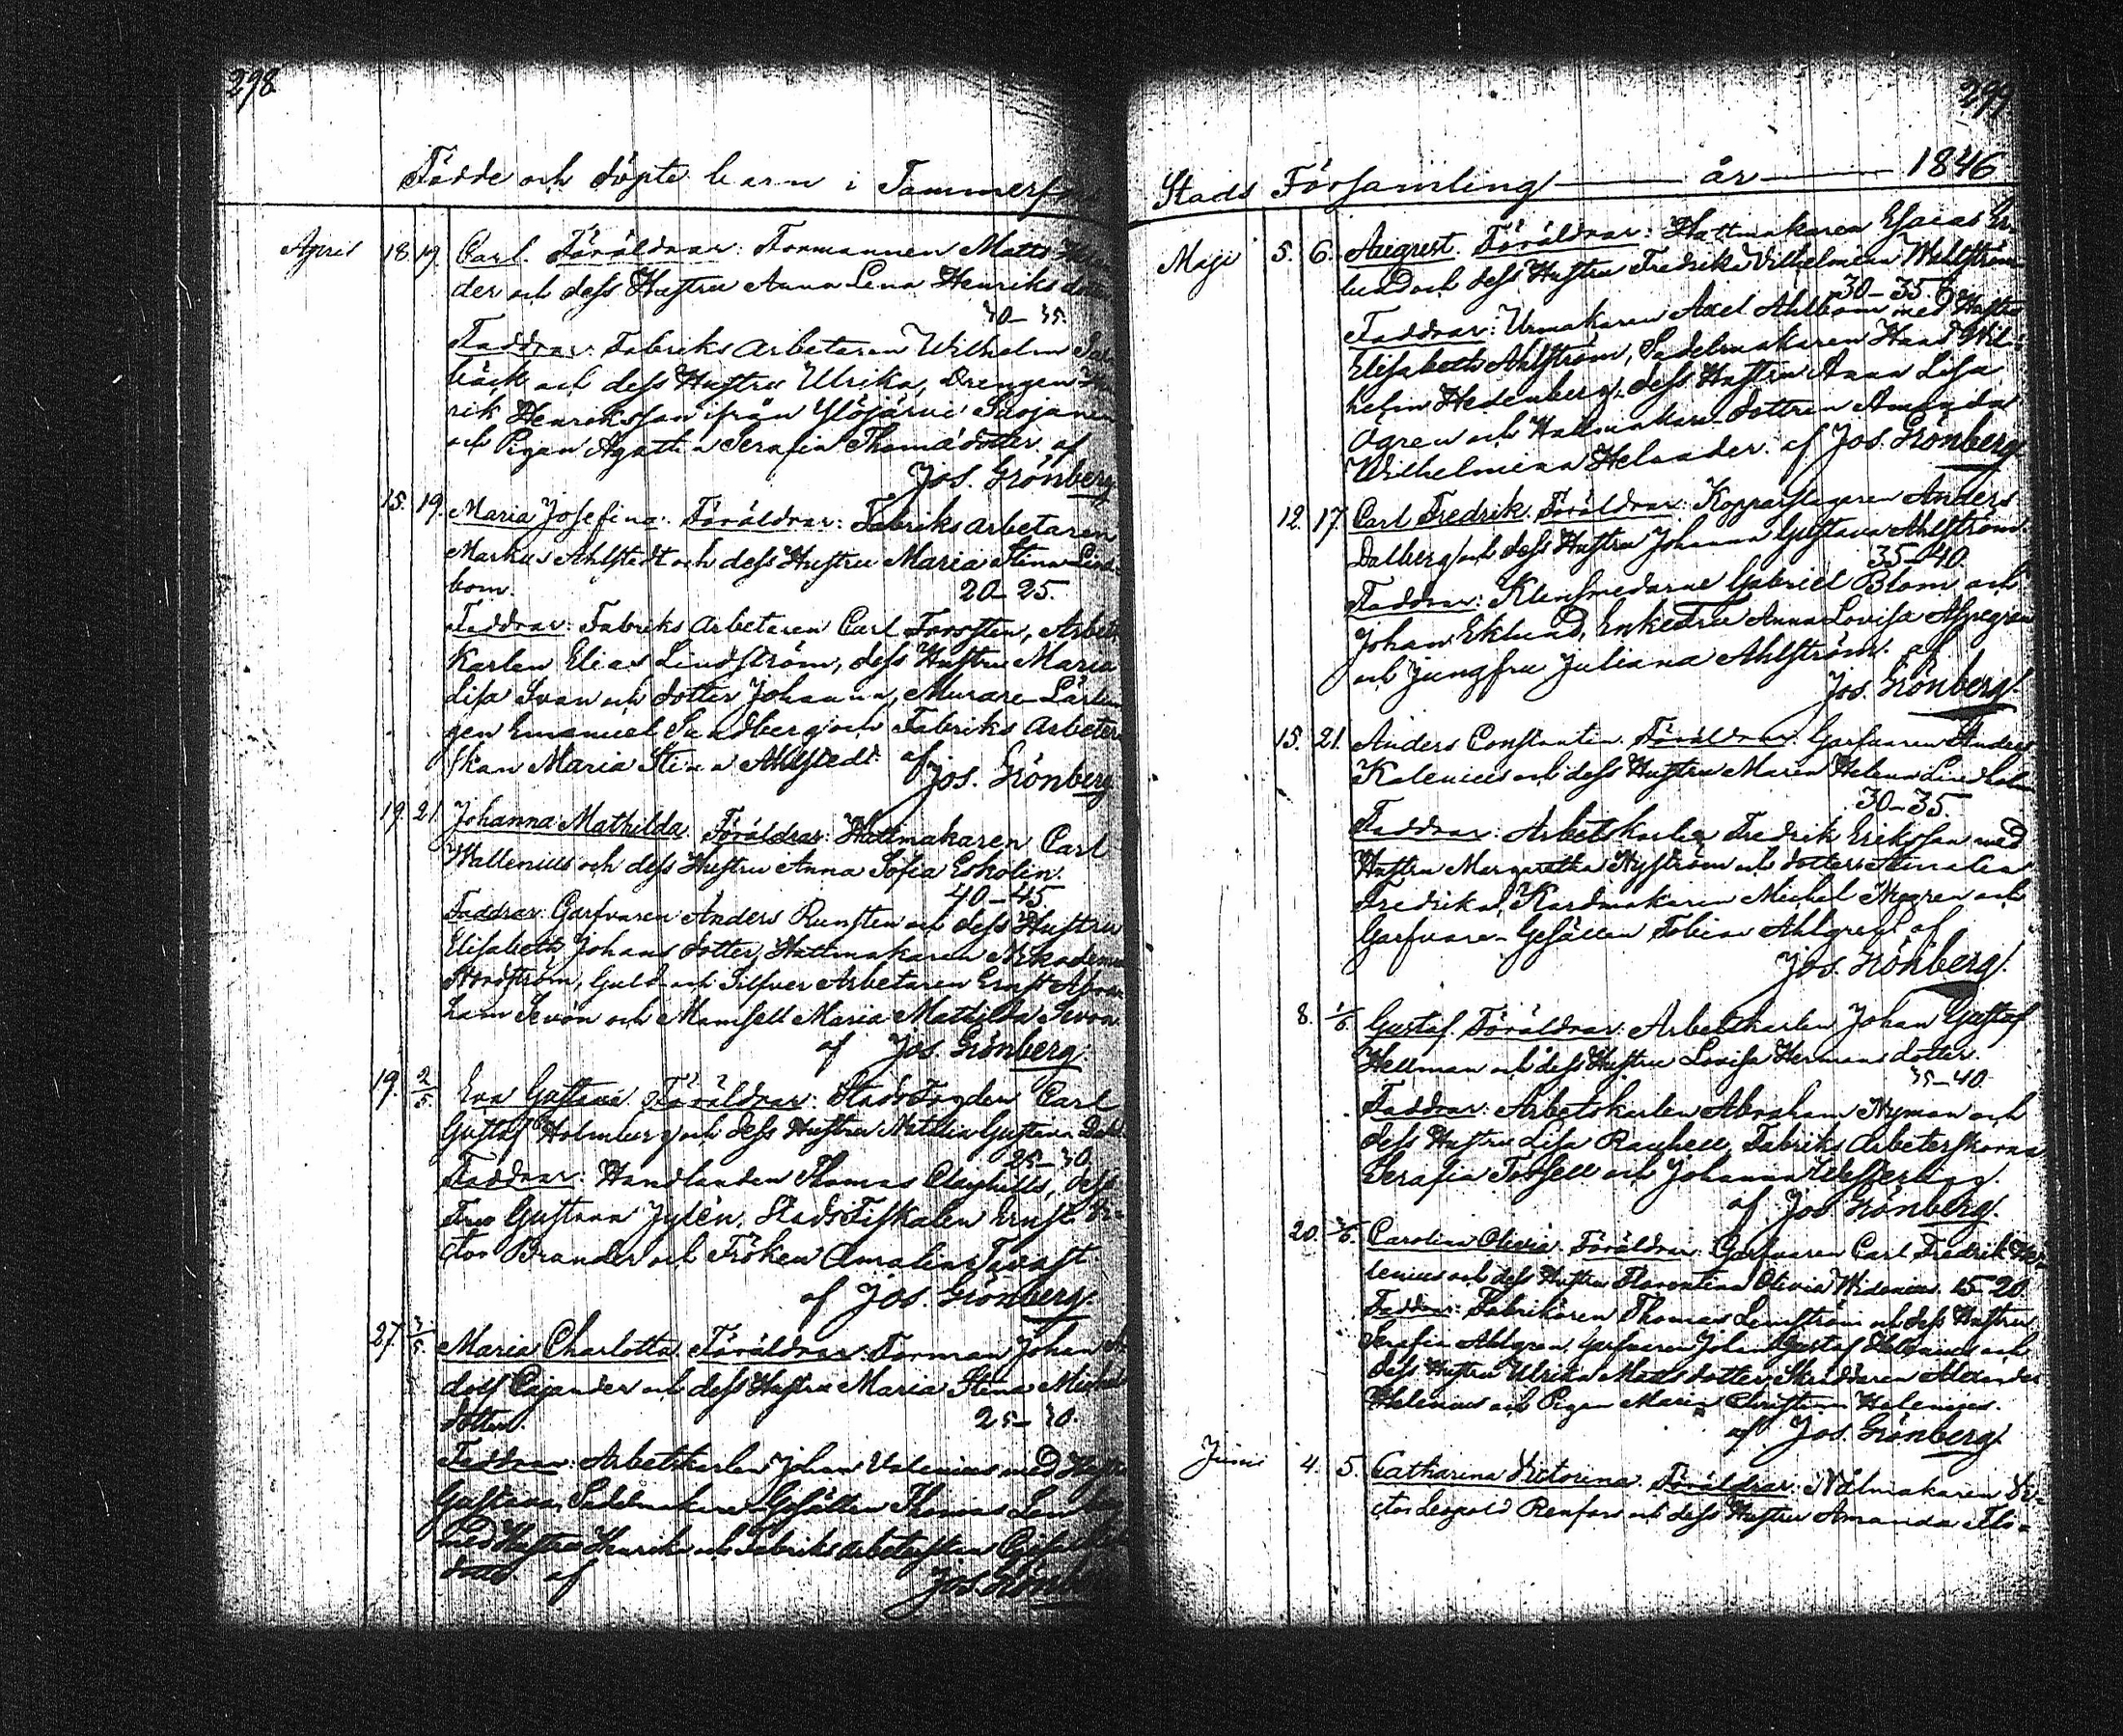 298
Födde och döpte barn i Tammerfors
April 18. 19. Carl. Föräldrar: Formannen Matts
der och dess Hustru Anna Lena Henriks dotter
30–35.
Faddrar: Fabriks arbetaren Wilhelm
bäck och dess Hustru Ulrika, Drengen
rik Henriksson ifrån Ylöjärvi
och Pigan Agatha Serafia Thomä dotter, af
Jos. Grönberg
15. 19. Maria Josefina. Föräldrar: Fabriks arbetaren
Markus Ahlstedt och dess Hustru Maria Stina Lind-
bom. 20–25.
Faddrar: Fabriks arbetaren Carl Forsten, Arbets
Karlen Elias Lindström, dess Hustru Maria
Lisa Ivan och dotter Johanna, Murare Lärlin
gen Emanuel Sandberg och Fabriks Arbeter
skan Maria Stina Ahlstedt. af
Jos. Grönberg
19. 21. Johanna Mathilda. Föräldrar: Hattmakaren Carl
Wallenius och dess Hustru Anna Sofia Eskolin.
40–45
Faddrar: Garfvaren Anders Runsten och dess Hustru
Elisabeth Johans dotter, Hattmakaren
Nordström, Guld och Silfver Arbetaren Ernst Abra-
ham Sevon och Mamsell Maria Mathilda Sevon
af Jos. Grönberg
19. 2/5 Eva Gustava. Föräldrar: Stads Fogden Carl
Gustaf Holmberg och dess Hustru Natalia Gustava
25–30
Faddrar: Handlanden Thomas Clayhills, dess
Fru Gustava Jylén, Stads Fiskalen Ernst Vi-
ctor Brander och Fröken Amalia Tavast.
af Jos. Grönberg.
27. 3/5 Maria Charlotta. Föräldrar: Forman Johan A
dolf Cajander och dess Hustru Maria Stina Michels
dotter. 25–30.
Faddrar: Arbetskarlen Johan Valenius med Hustru
Gustava, Sadelmakare Gesällen Thomas
med Hustru Henrika och Fabriks arbeterskan
dotter af Jos. Grönberg
299
Stads Församling år 1846
Maji 5. 6. August. Föräldrar: Hattmakaren Esaias Er-
lund och dess Hustru Fredrika Vilhelmina Wahlström
30–35.
Faddrar: Urmakaren Axel Ahlbom med Hustru
Elisabeth Ahlström, Sadelmakaren Hans Wil-
helm Hedenberg, dess Hustru Anna Lisa
Ögren och Hattmakare Dottren Amanda
Wilhelmina Helander. af Jos. Grönberg.
12. 17. Carl Fredrik. Föräldrar: Kopparslagaren Anders
Dalberg och dess Hustru Johanna Gustava Ahlström
35–40.
Faddrar: Klensmedarne Gabriel Blom och
Johan Eklund, Enkefru Anna Lovisa Aspegren
och Jungfru Juliana Ahlström. af
Jos. Grönberg.
15. 21. Anders Constantin. Föräldrar: Garfvaren Anders
Kalenius och dess Hustru Maria Helena Lindholm
30–35.
Faddrar: Arbetskarlen Fredrik Eriksson med
Hustru Margaretha Nyström och dotter
Fredrika, Kardmakaren Michel Nygren och
Garfvare-Gesällen Tobias Ahlgren. af
Jos. Grönberg.
8. 1/6 Gustaf. Föräldrar: Arbetskarlen Johan Gustaf
Hellman och dess Hustru Lovisa Hermans dotter.
35–40.
Faddrar: Arbetskarlen Abraham Nyman och
dess Hustru Lisa Rauhell, Fabriks Arbeterskorna
Serafia Forssell och Johanna Westerberg.
af Jos. Grönberg.
20. /6 Carolina Olivia. Föräldrar: Garfvaren Carl Fredrik He-
lenius och dess Hustru Florentina Olivia Widenius. 15–20.
Faddrar: Fabrikören Thomas Lemström och dess Hustru
Serafia Ahlgren, Garfvaren Johan Gustaf Helenius och
dess Hustru Ulrika Matsdotter, Skräddaren Alexander
Helenius och Pigan Maria Christina Helenius.
af Jos. Grönberg.
Junii 4. 5. Catharina Victorina. Föräldrar: Nålmakaren Vi-
ctor Leopold Renfors och dess Hustru Amanda Flo-